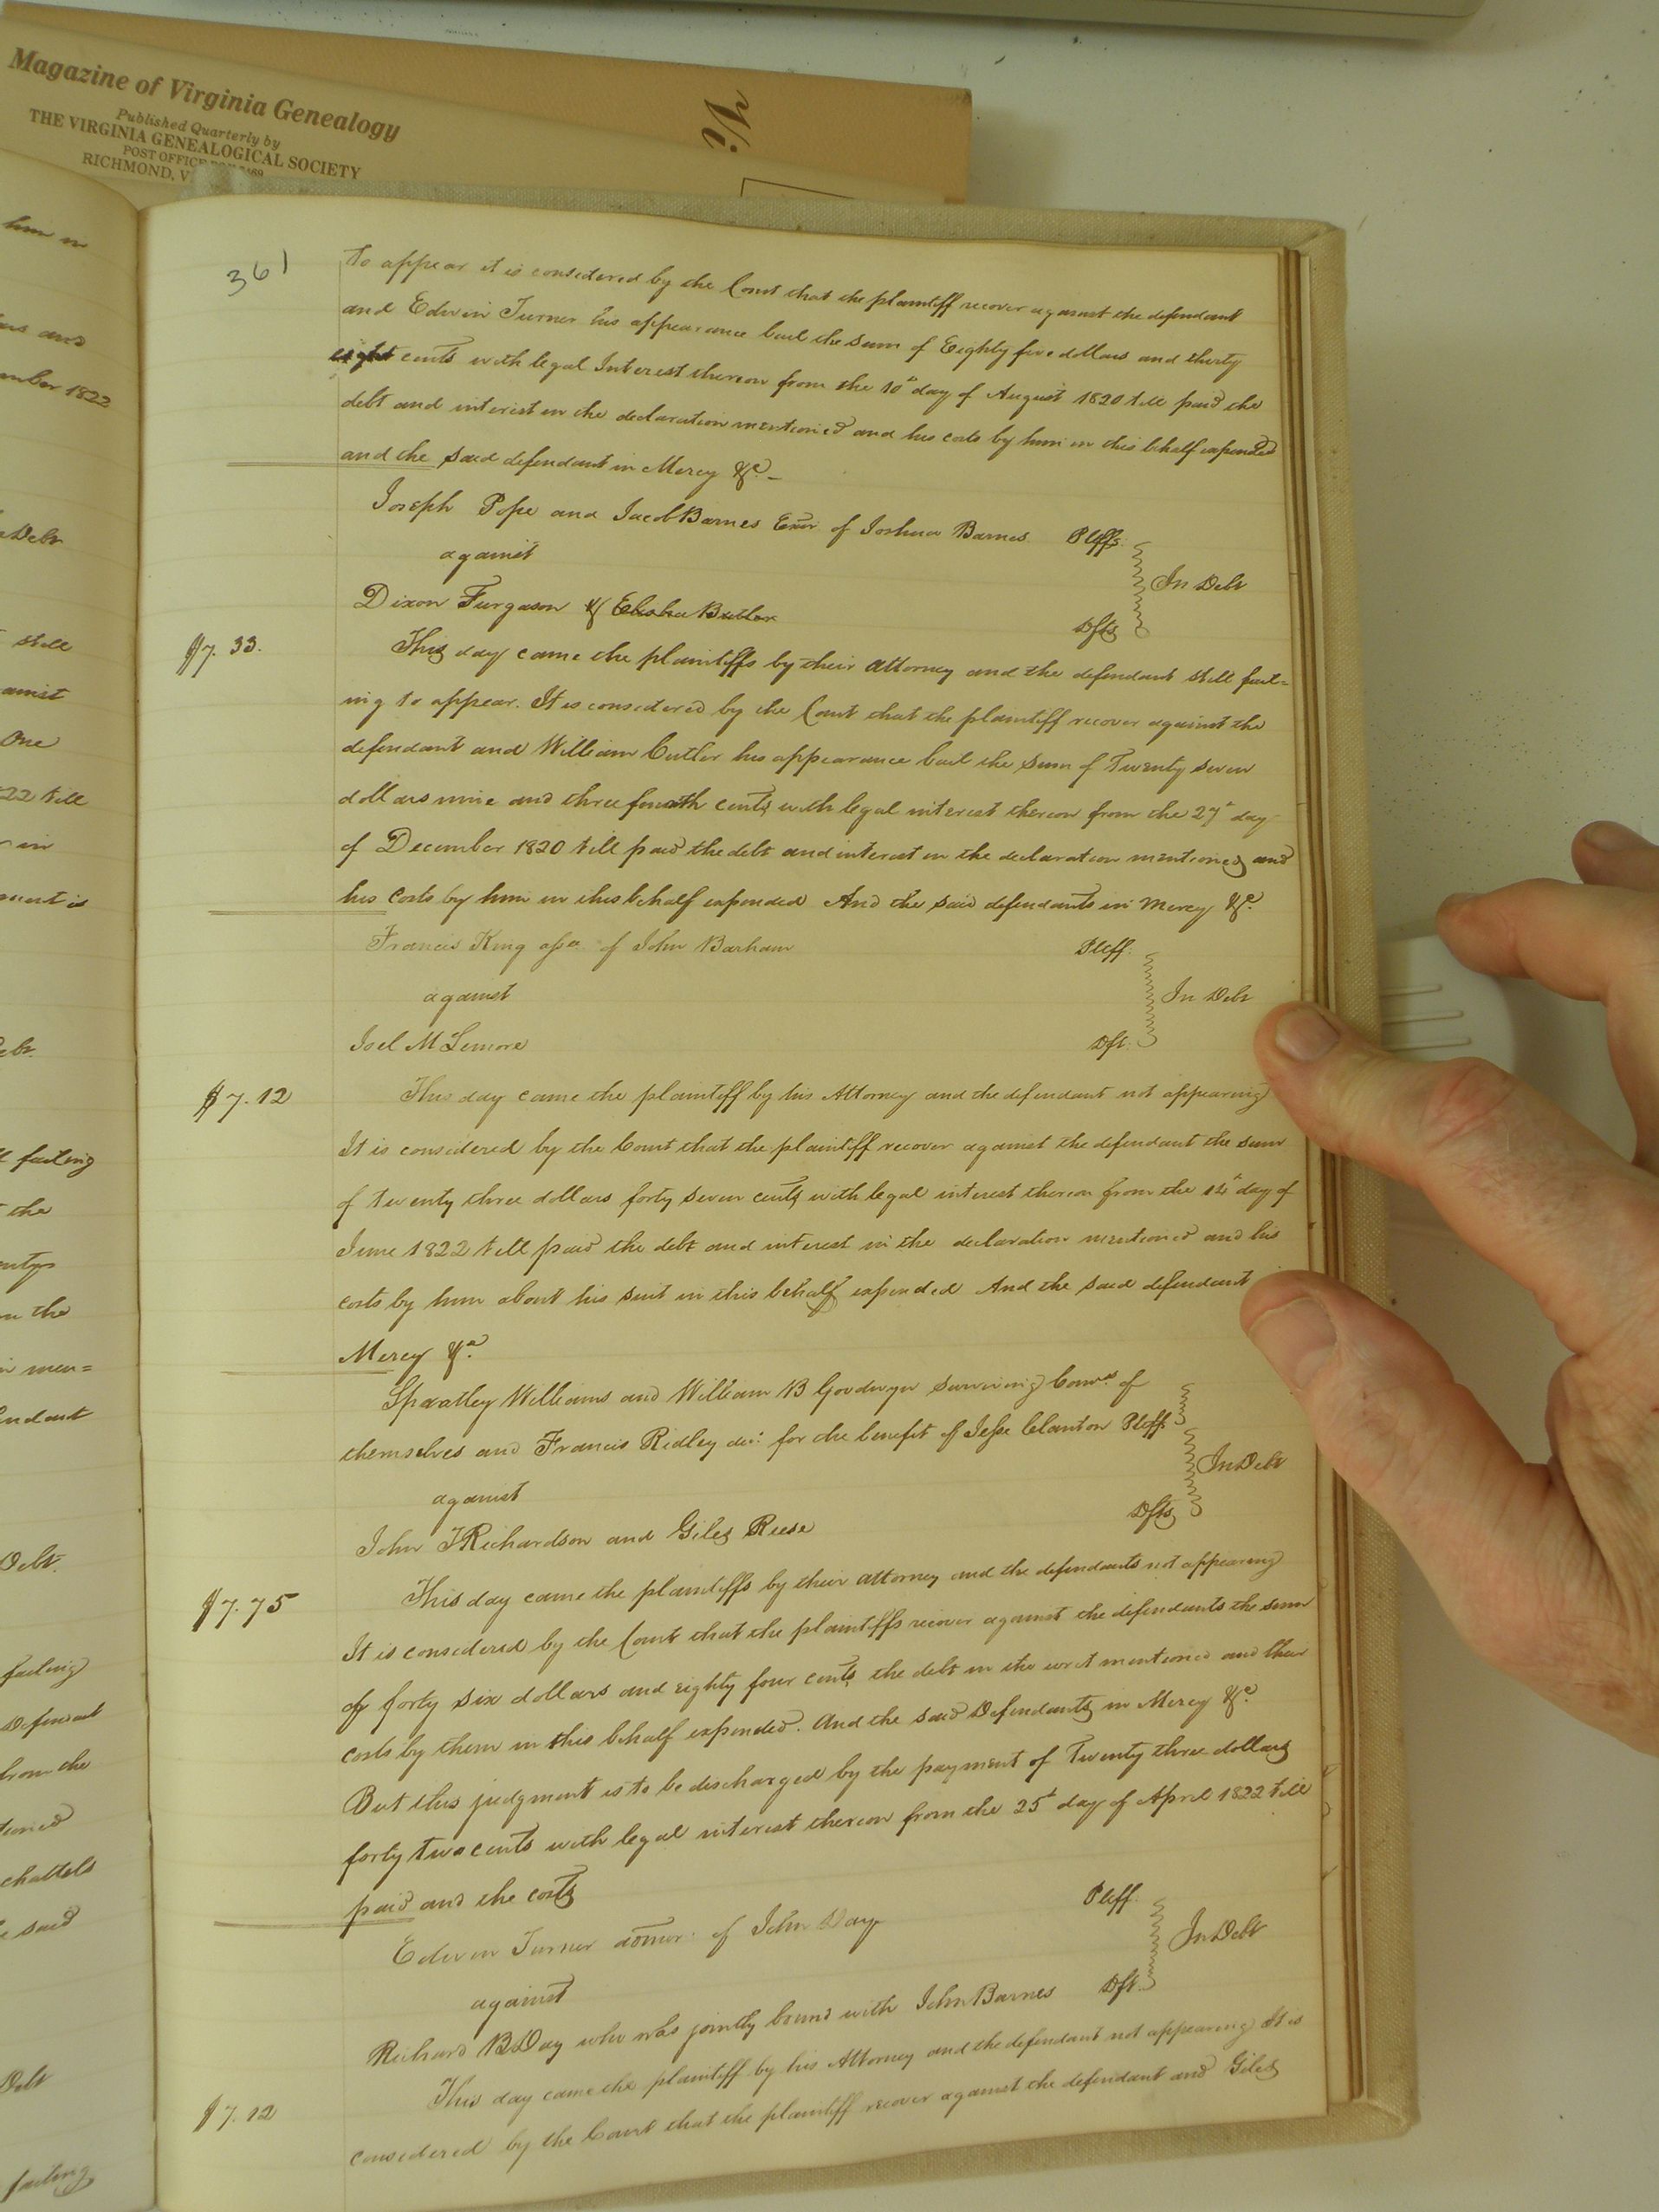 Magazine of Virginia Genealogy
Published Quarterly by
THE VIRGINIA GENEALOGICAL SOCIETY
POST OFFICE
RICHMOND, V
him in
and
mber 1822
Debt
still
against
One
22 till
in
Debt
failing
the
in the
men=
Debt.
failing
Defendant
from the
chattels
said
Debt
failing
361
to appear it is considered by the Court that the plaintiff recover against the defendant
and Edwin Turner his appearance bail the sum of Eighty five dollars and thirty
eight cents with legal Interest thereon from the 10th day of August 1820 till paid the
debt and interest in the declaration mentioned and his costs by him in this behalf expended
and the said defendant in Mercy &c. –
Joseph Pope and Jacob Barnes Exor. of Joshua Barnes Pltffs.
against In Debt
Dixon Furgason & Elisha Butler Dfts
$7.33.
This day came the plaintiffs by their attorney and the defendant still fail=
ing to appear. It is considered by the Court that the plaintiff recover against the
defendant and William Cutler his appearance bail the sum of Twenty seven
dollars nine and three fourth cents with legal interest thereon from the 27th day
of December 1820 till paid the debt and interest in the declaration mentioned and
his costs by him in this behalf expended And the said defendants in Mercy &c.
Francis King asse. of John Barham Pltff.
against In Debt
Joel McLemore Dft.
$7.12
This day came the plaintiff by his Attorney and the defendant not appearing
It is considered by the Court that the plaintiff recover against the defendant the sum
of twenty three dollars forty seven cents with legal interest thereon from the 14th day of
June 1822 till paid the debt and interest in the declaration mentioned and his
costs by him about his suit in this behalf expended And the said defendant
Mercy &c.
Spratley Williams and William B Goodwyn surviving Comrs of
themselves and Francis Ridley dec. for the benefit of Jesse Clanton Pltff.
against In Debt
John T Richardson and Giles Reese Dfts
$7.75
This day came the plaintiffs by their attorney and the defendants not appearing
It is considered by the Court that the plaintiffs recover against the defendants the sum
of forty six dollars and eighty four cents the debt in the writ mentioned and their
costs by them in this behalf expended. And the said Defendants in Mercy &c.
But this judgment is to be discharged by the payment of Twenty three dollars
forty two cents with legal interest thereon from the 25th day of April 1822 till
paid and the costs
Edwin Turner admor. of John Day Pltff.
against In Debt
Richard B Day who was jointly bound with John Barnes Dft.
$7.12
This day came the plaintiff by his Attorney and the defendant not appearing It is
considered by the Court that the plaintiff recover against the defendant and Giles